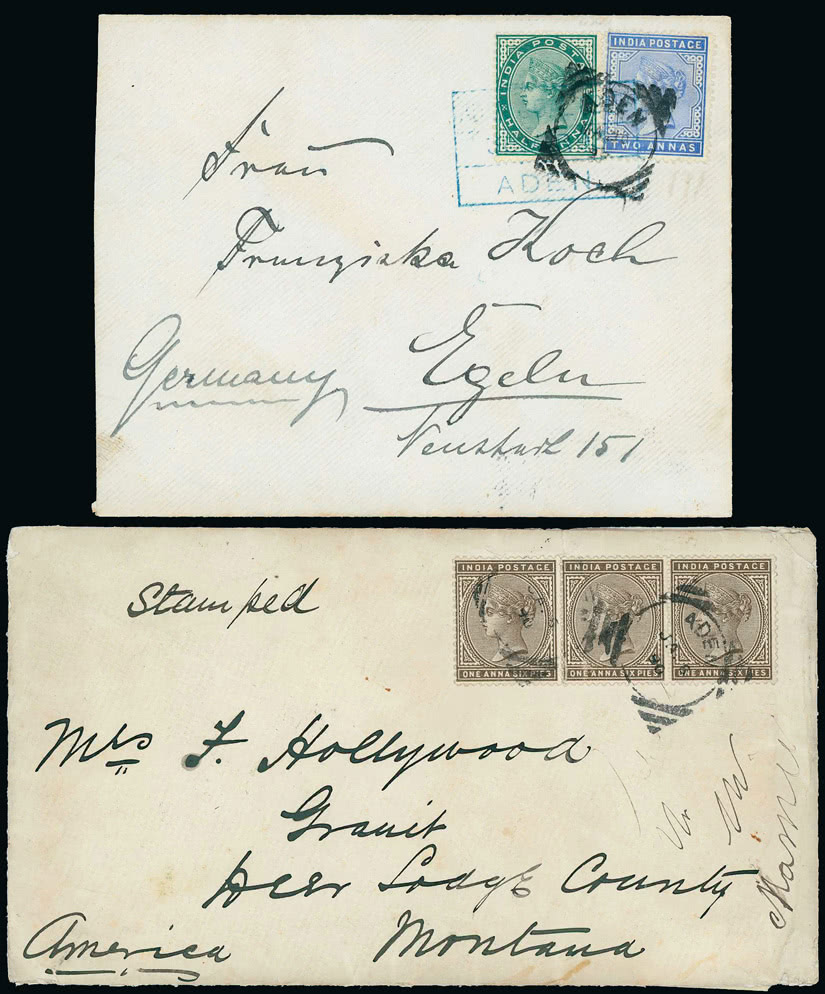 INDIA POSTAGE
HALF ANNA
INDIA POSTAGE
TWO ANNAS
ADEN
ADEN
Frau
Franziska Koch
Germany
Egeln
151
INDIA POSTAGE
ONE ANNA SIX PIES
INDIA POSTAGE
ONE ANNA SIX PIES
INDIA POSTAGE
ONE ANNA SIX PIES
ADEN
JA 6
90
Stamped
Mrs F. Hollywood
Granit
Deer Lodge County
America Montana